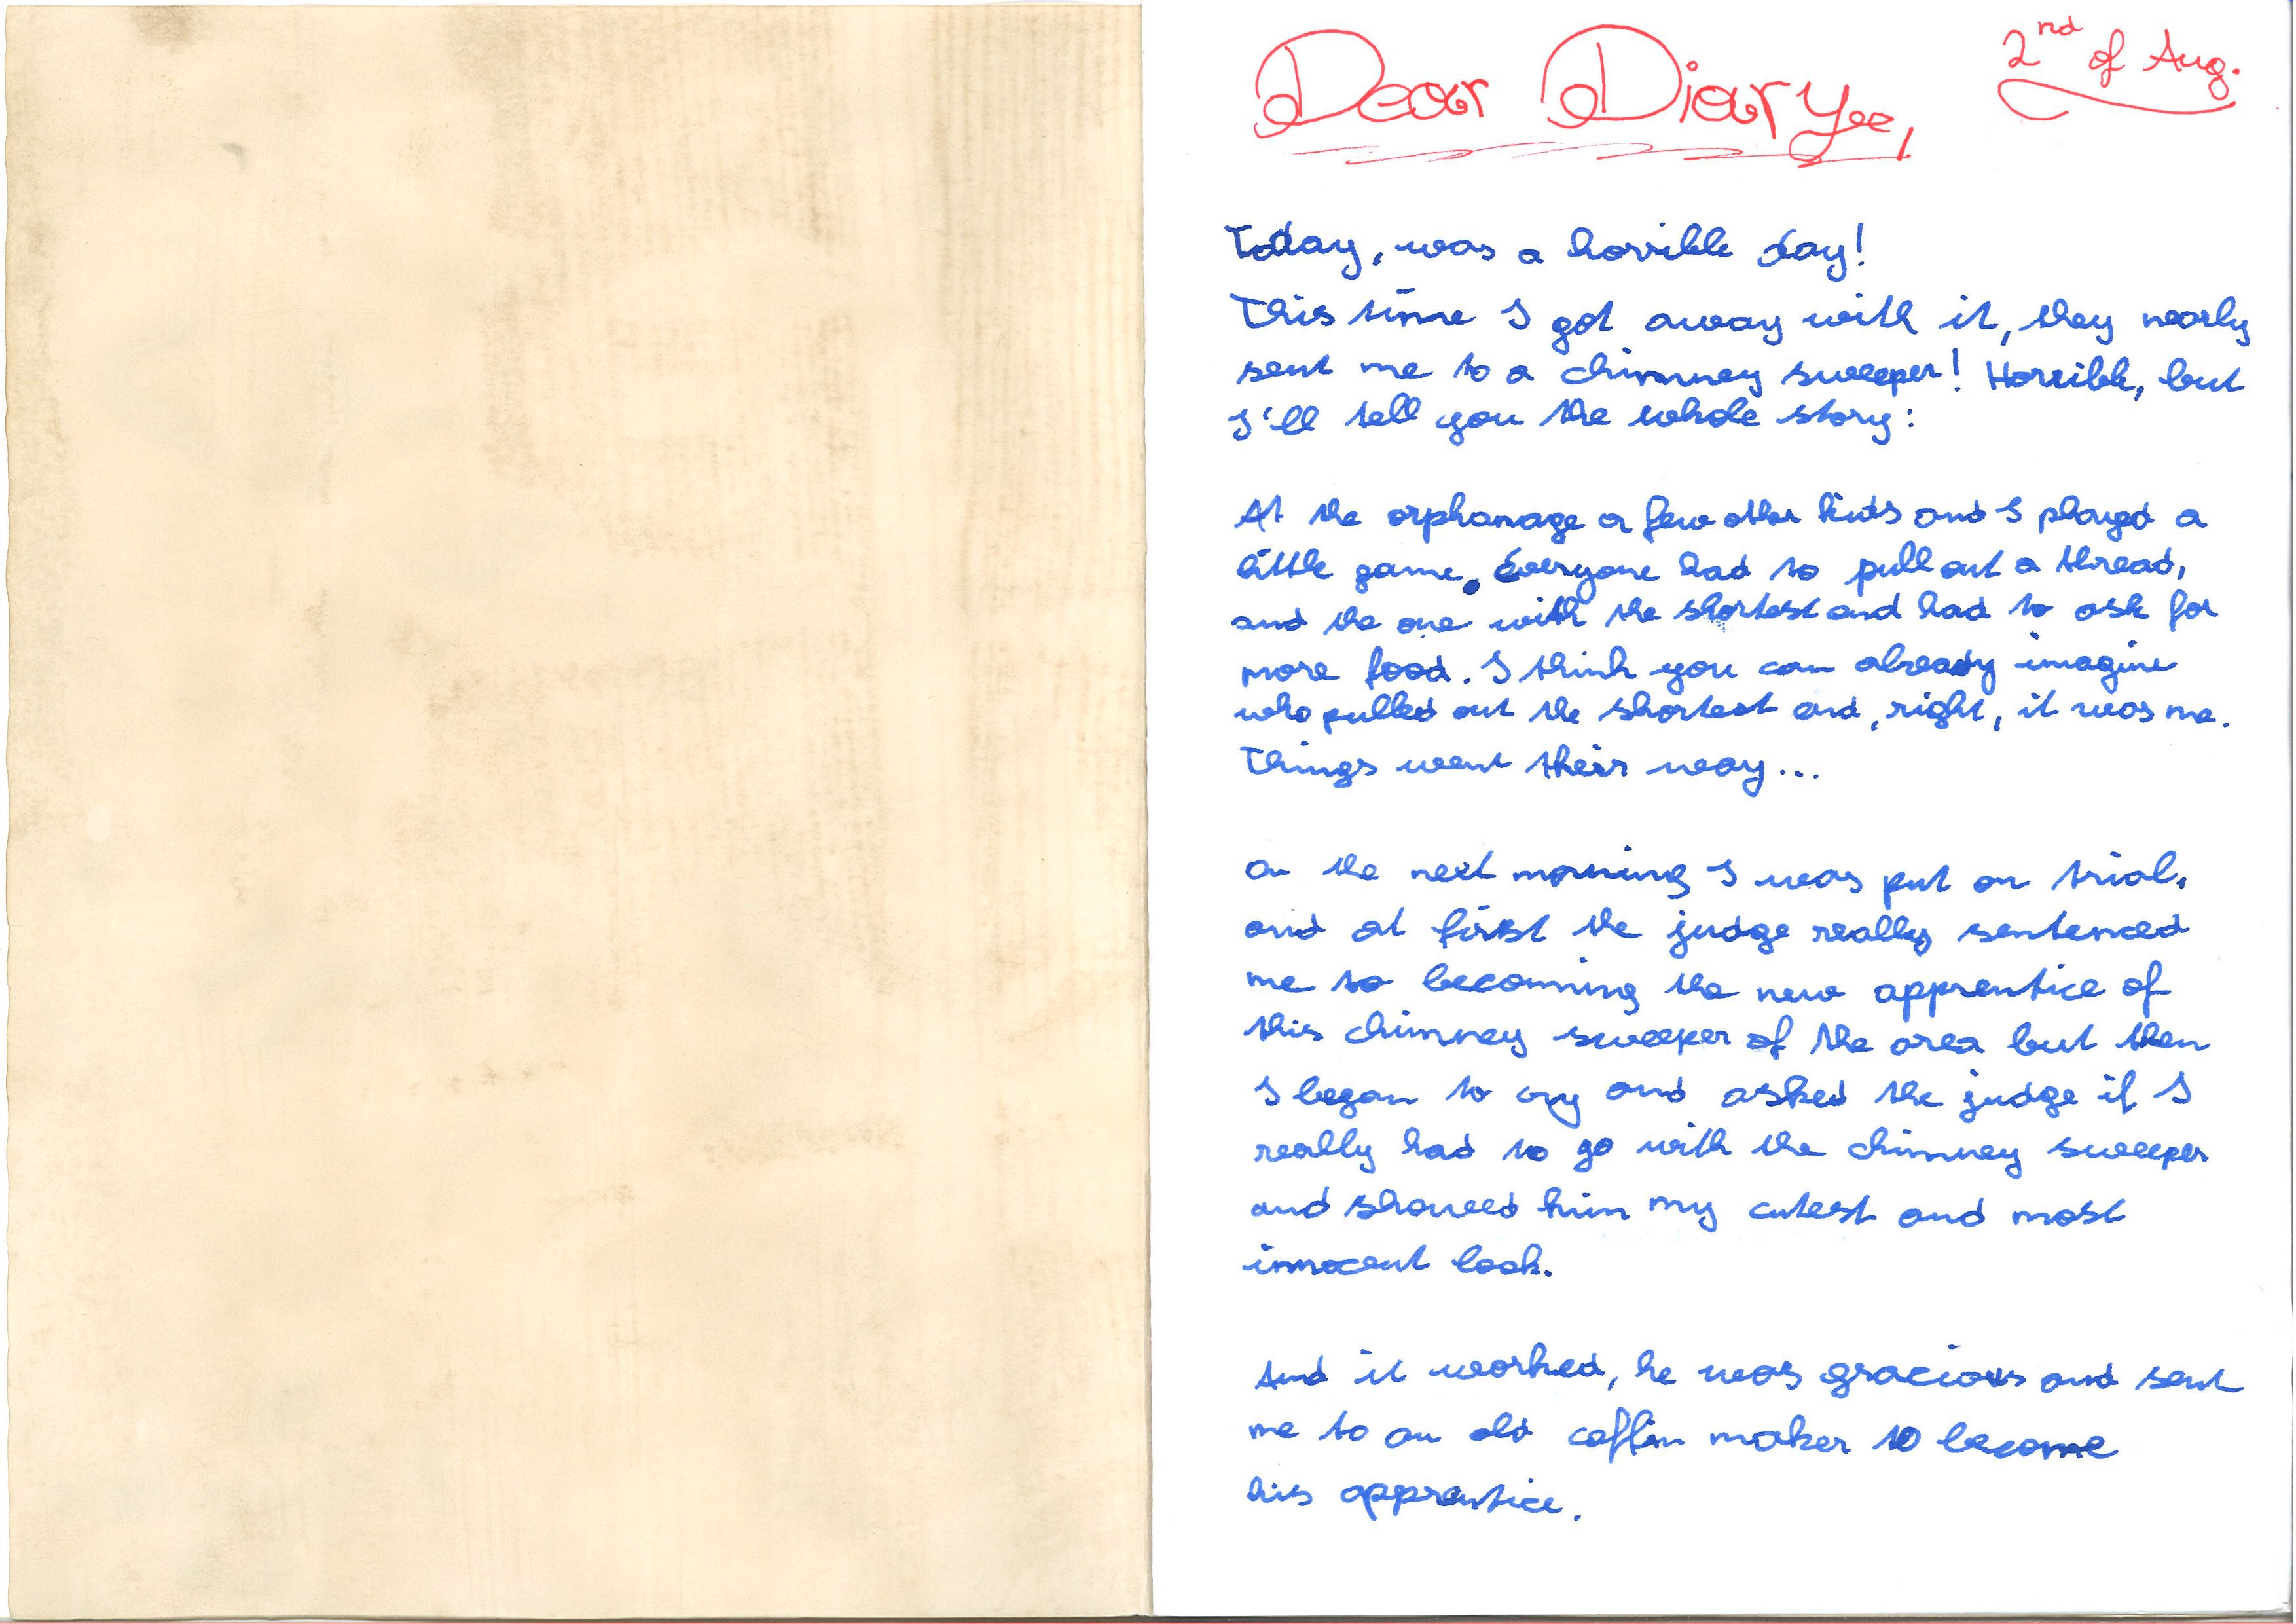 Dear Diary,
2nd of Aug.
Today, was a horrible day!
This time I got away with it, they nearly
sent me to a chimney sweeper! Horrible, but
I'll tell you the whole story:
At the orphanage a few other kids and I played a
little game. Everyone had to pull out a thread,
and the one with the shortest end had to ask for
more food. I think you can already imagine
who pulled out the shortest end, right, it was me.
Things went their way...
On the next morning I was put on trial,
and at first the judge really sentenced
me to becoming the new apprentice of
this chimney sweeper of the area but then
I began to cry and asked the judge if I
really had to go with the chimney sweeper
and showed him my cutest and most
innocent look.
And it worked, he was gracious and sent
me to an old coffin maker to become
his apprentice.